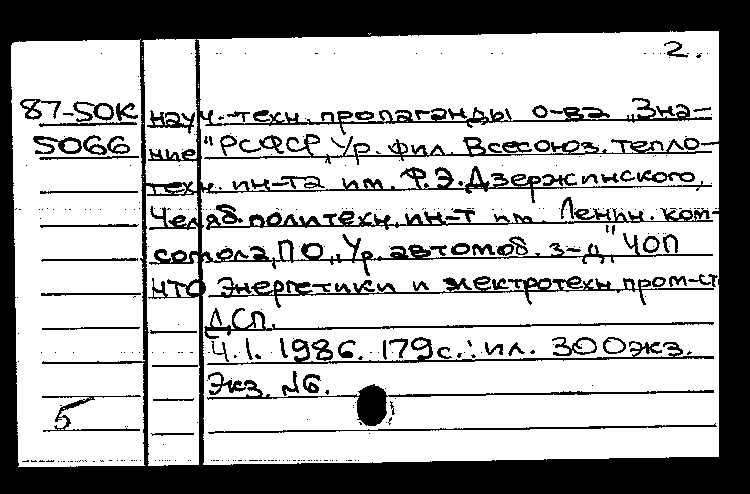 2.
87-50К науч.-техн. пропаганды о-ва „Зна-
5066 ние" РСФСР, Ур. фил. Всесоюз. тепло-
техн. ин-та им. Ф.Э.Дзержинского,
Челяб. политехн. ин-т им. Ленин. ком-
сомола, ПО „Ур. автомоб. з-д", ЧОП
НТО Энергетики и электротехн. пром-сти
ДСП.
Ч.1. 1986. 179с.: ил. 300экз.
Экз. №6.
5